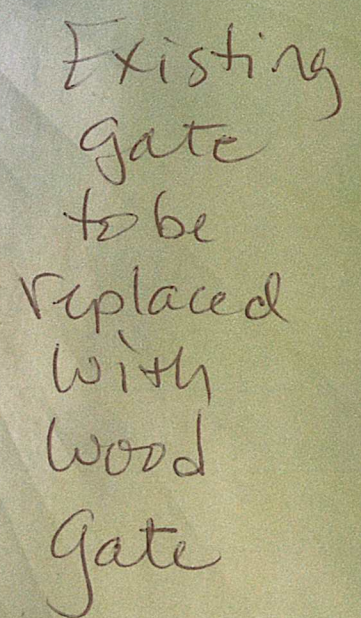 Existing
gate
to be
replaced
with
wood
gate